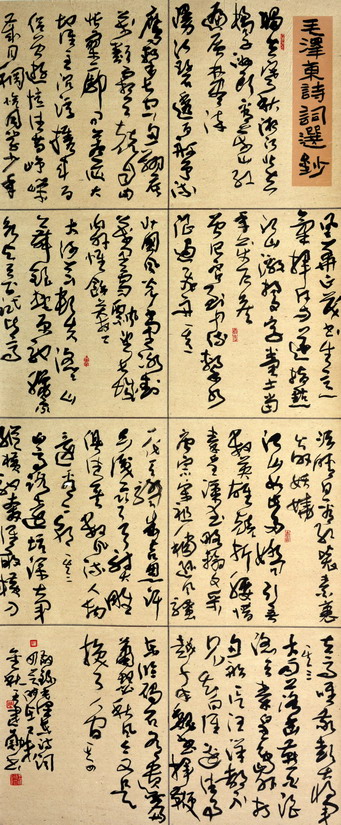 毛澤東詩詞選鈔
獨立寒秋湘江北去
橘子洲頭看萬山紅
遍層林盡染
漫江碧透百舸爭流
鷹擊長空魚翔淺底
萬類霜天競自由
悵寥廓問蒼茫大
地誰主沉浮攜來百
侶曾遊憶往昔崢嶸
歲月稠恰同學少年
風華正茂書生意
氣揮斥方遒指點
江山激揚文字糞土當
年萬戶侯
曾記否到中流擊水
浪遏飛舟其一
北國風光千里冰封
萬里雪飄望長城
內外惟餘莽莽
大河上下頓失滔滔山
舞銀蛇原馳蠟象
欲與天公試比高
須晴日看紅裝素裹
分外妖嬈
江山如此多嬌引無
數英雄競折腰惜
秦皇漢武略輸文采
唐宗宋祖稍遜風騷
一代天驕成吉思汗
只識彎弓射大雕
俱往矣數風流人物
還看今朝其二
山高路遠坑深大軍
縱橫馳奔誰敢橫刀
立馬唯我彭大將軍
其三
大雨落幽燕白浪
滔天秦皇島外打
魚船一片汪洋都不
見知向誰邊往事
越千年魏武揮鞭
東臨碣石有遺篇
蕭瑟秋風今又是
換了人間其四